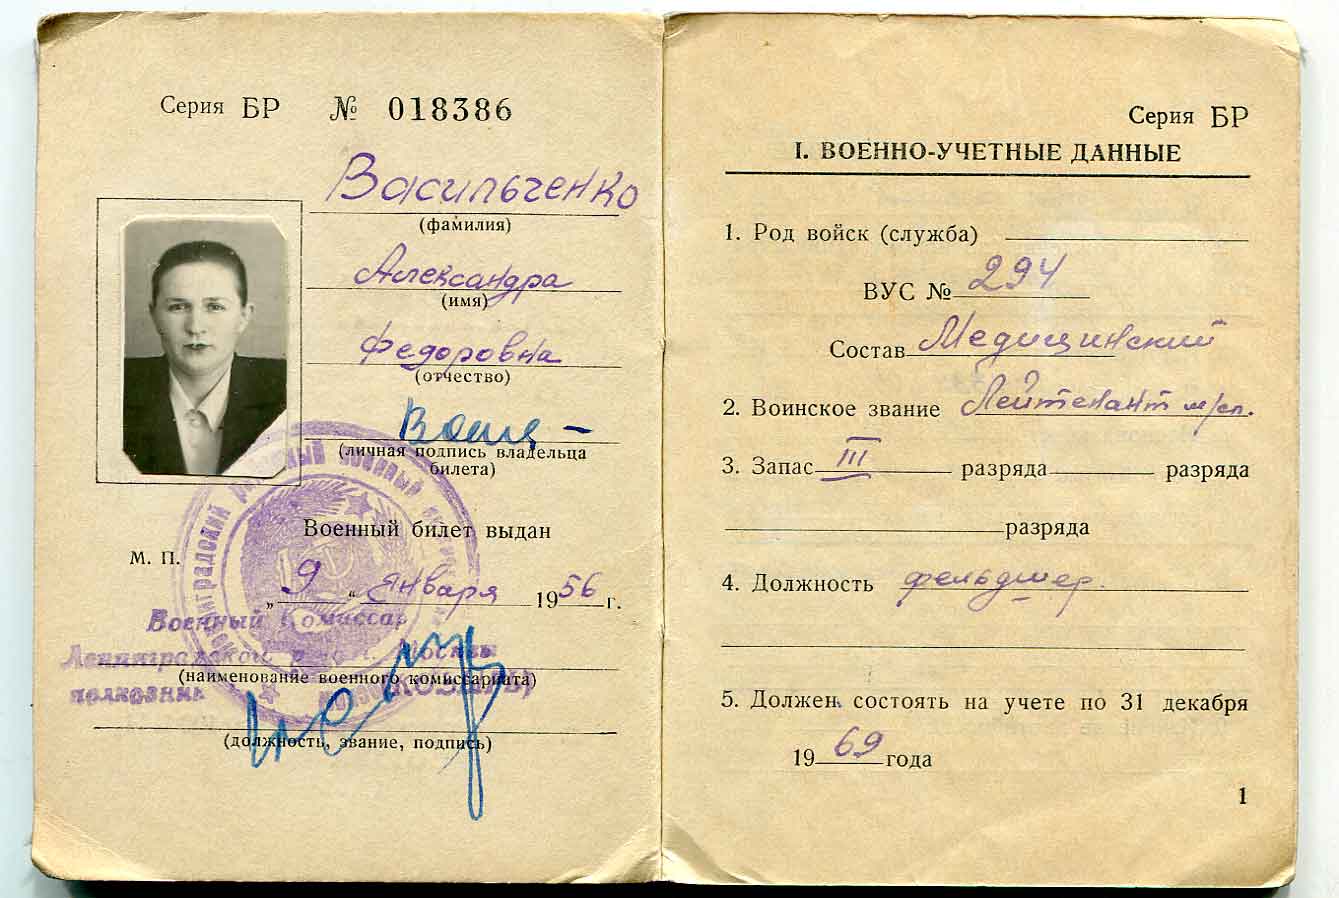 Серия БР № 018386
Васильченко
(фамилия)
Александра
(имя)
Федоровна
(отчество)
(личная подпись владельца
билета)
Военный билет выдан
М. П.
„ 9 “ января 1956 г.
Военный Комиссар
Ленинградского р-на г. Москвы
(наименование военного комиссариата)
полковник
(должность, звание, подпись)
Серия БР
I. ВОЕННО-УЧЕТНЫЕ ДАННЫЕ
1. Род войск (служба)
ВУС № 294
Состав Медицинский
2. Воинское звание Лейтенант м/сл.
3. Запас III разряда разряда
разряда
4. Должность фельдшер.
5. Должен состоять на учете по 31 декабря
1969 года
1